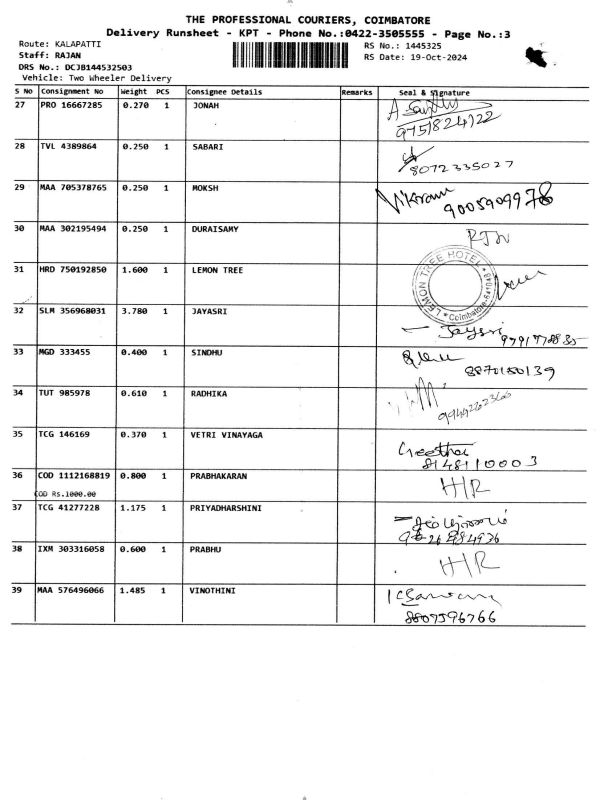 THE PROFESSIONAL COURIERS, COIMBATORE
Delivery Runsheet - KPT - Phone No.:0422-3505555 - Page No.:3
Route: KALAPATTI
RS No.: 1445325
Staff: RAJAN
RS Date: 19-Oct-2024
DRS No.: DCJB144532503
Vehicle: Two Wheeler Delivery
S No Consignment No Weight PCS Consignee Details Remarks Seal & Signature
27 PRO 16667285 0.270 1 JONAH
9751824122
28 TVL 4389864 0.250 1 SABARI
8072335027
29 MAA 705378765 0.250 1 MOKSH Vikram
9005909978
30 MAA 302195494 0.250 1 DURAISAMY
31 HRD 750192850 1.600 1 LEMON TREE
LEMON TREE HOTEL
* Coimbatore
32 SLM 356968031 3.780 1 JAYASRI
Jaysri
33 MGD 333455 0.400 1 SINDHU
8870150139
34 TUT 985978 0.610 1 RADHIKA
9944262366
35 TCG 146169 0.370 1 VETRI VINAYAGA
Geetha
8148110003
36 COD 1112168819 0.800 1 PRABHAKARAN H/R
COD Rs.1000.00
37 TCG 41277228 1.175 1 PRIYADHARSHINI
38 IXM 303316058 0.600 1 PRABHU H/R
39 MAA 576496066 1.485 1 VINOTHINI
8807596766